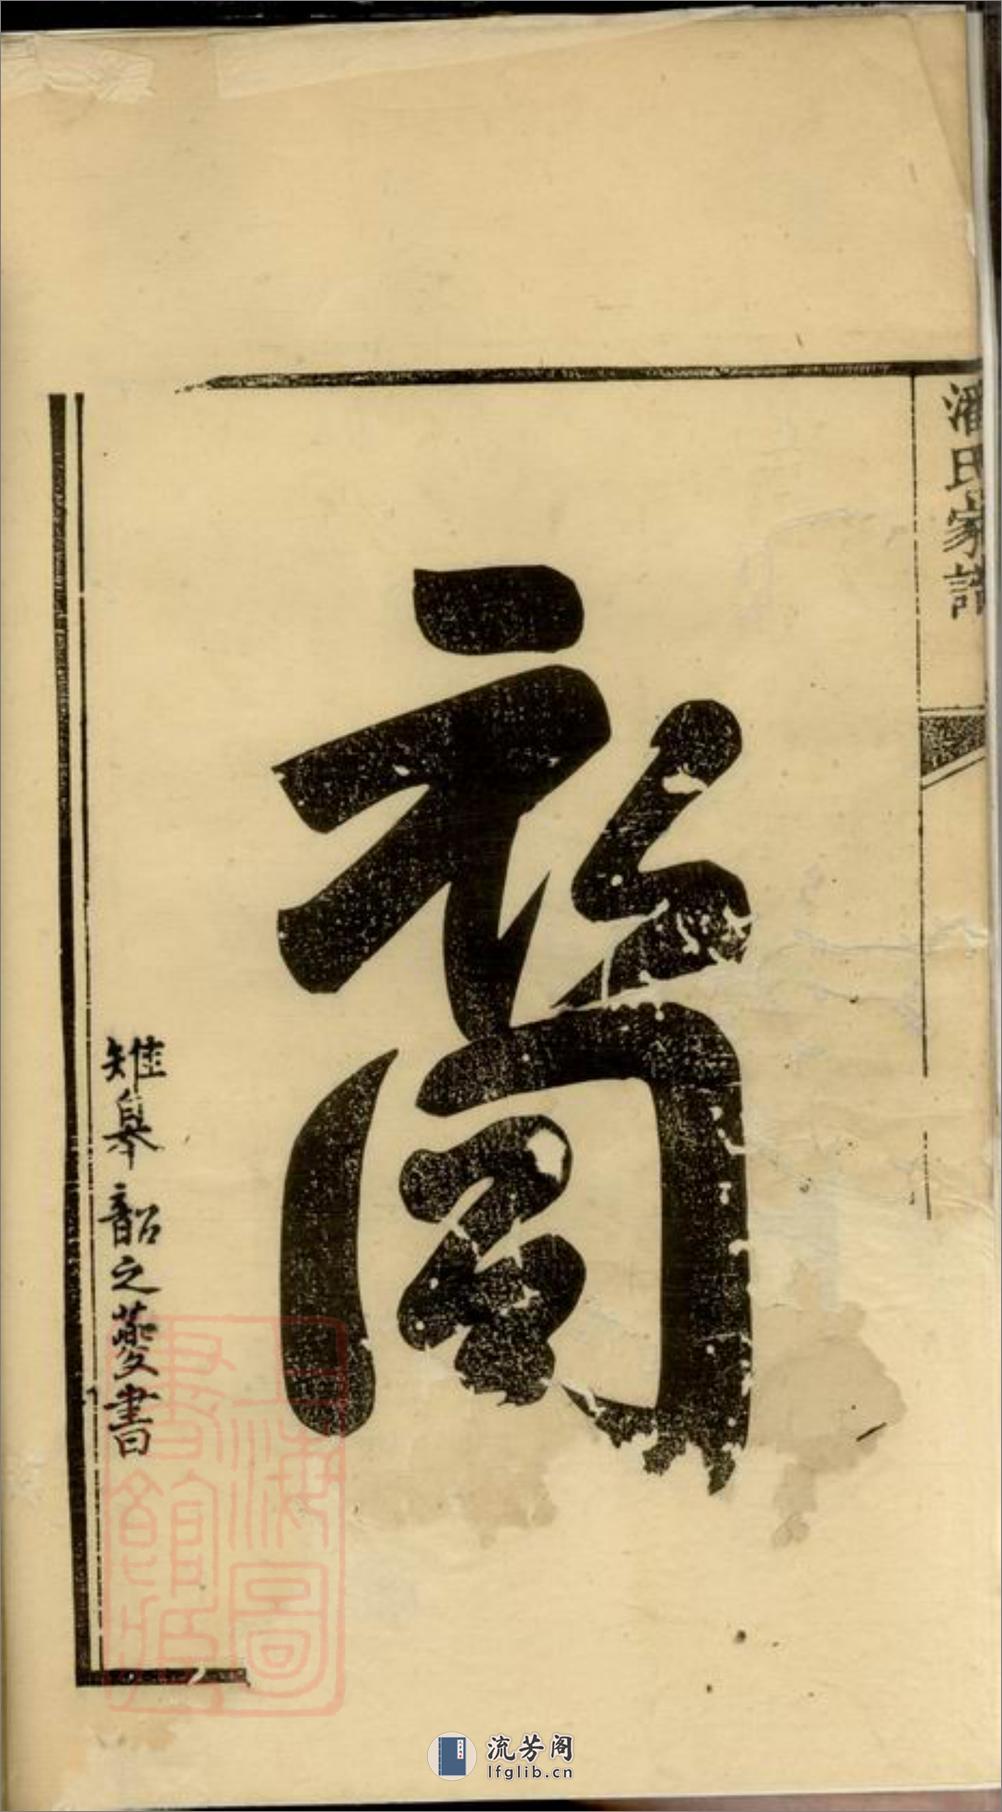 潘氏家譜
裔
雉皋韶之夔書
上海圖
書館藏
流芳阁
lfglib.cn